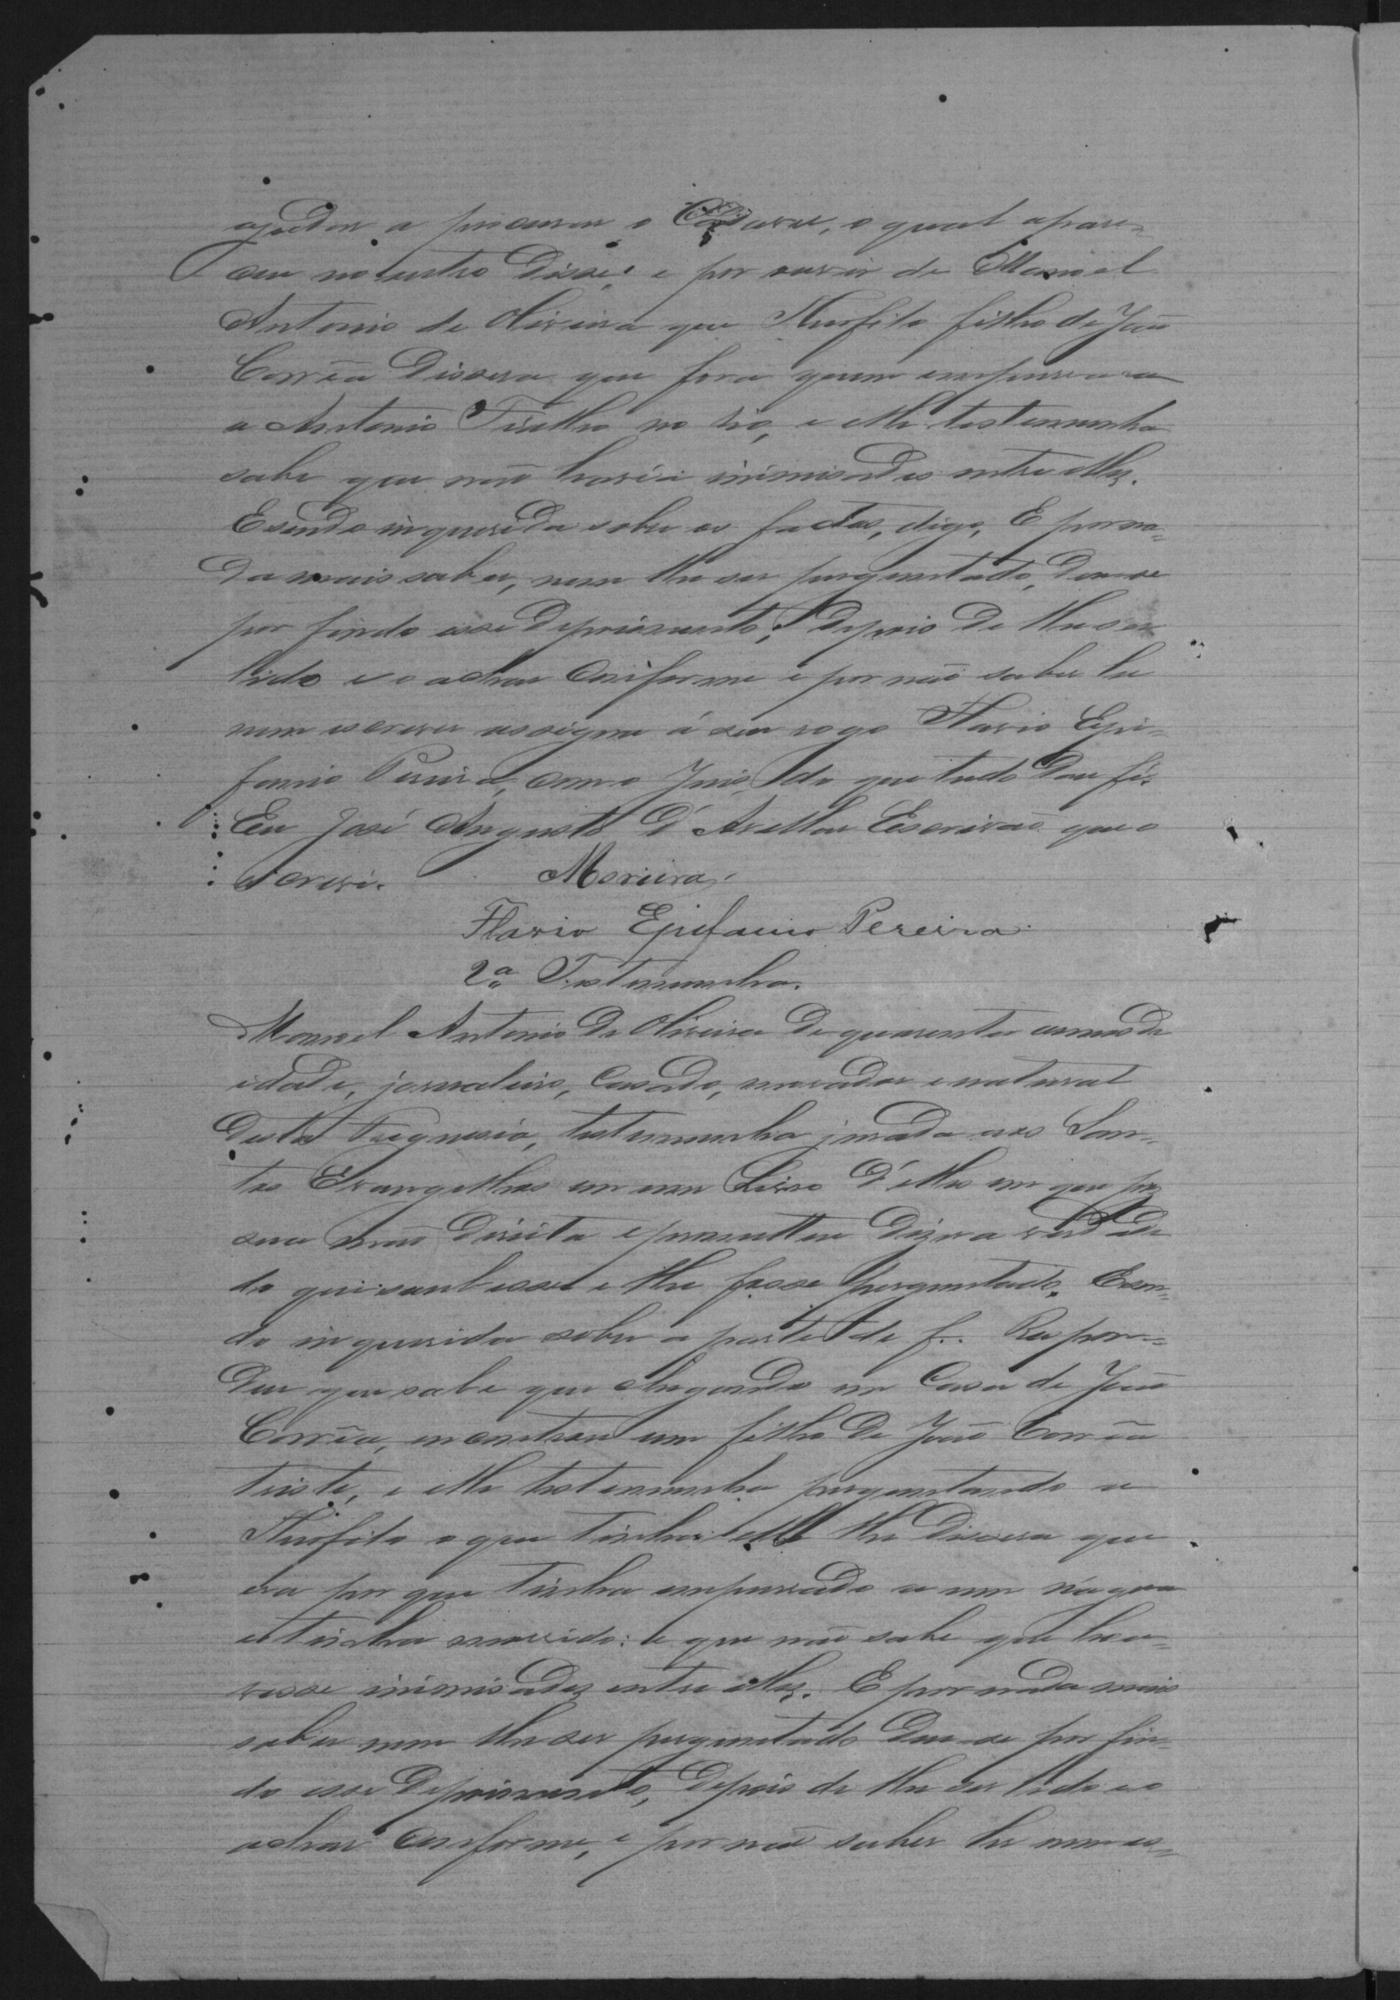 ajudou a procurar o Cadaver, o qual appare-
ceu no outro dia e por ouvir de Manoel
Antonio de Oliveira que filho de João
Corrêa dissera que fora quem empurrara
a Antonio no rio, e elle testemunha
sabe que não havia inimisades entre elles.
E sendo inquerida sobre os factos, digo, E por na-
da mais saber, nem lhe ser perguntado, deu-se
por findo esse depoimento, depois de lhe ser
lido e o achar conforme e por não saber ler
nem escrever assigna á seu rogo Flavio Epi-
fanio Pereira, com o Juis, do que tudo dou fé.
Eu José Augusto d'Avellar Escrivão que o
escrevi. Moreira
Flavio Epifanio Pereira
2ª Testemunha.
Manoel Antonio de Oliveira de quarenta annos de
idade, jornaleiro, casado, morador e natural
desta Freguesia, testemunha jurada aos San-
tos Evangelhos em um Livro d'elles em que pos
sua mão direita e prometteu diser a verdade
do que soubesse e lhe fosse perguntado. E sen-
do inquerida sobre a parte de f.. Respon-
deu que sabe que chegando em casa de João
Corrêa, encontrou um filho de João Corrêa
triste, e elle testemunha perguntando a
o que tinha elle lhe dissera que
era por que tinha empurrado a um n'agua
e tinha morrido: e que não sabe que hou-
vesse inimisades entre elles. E por nada mais
saber nem lhe ser perguntado deu-se por fin-
do esse depoimento, depois de lhe ser lido e o
achar conforme, e por não saber ler nem es-